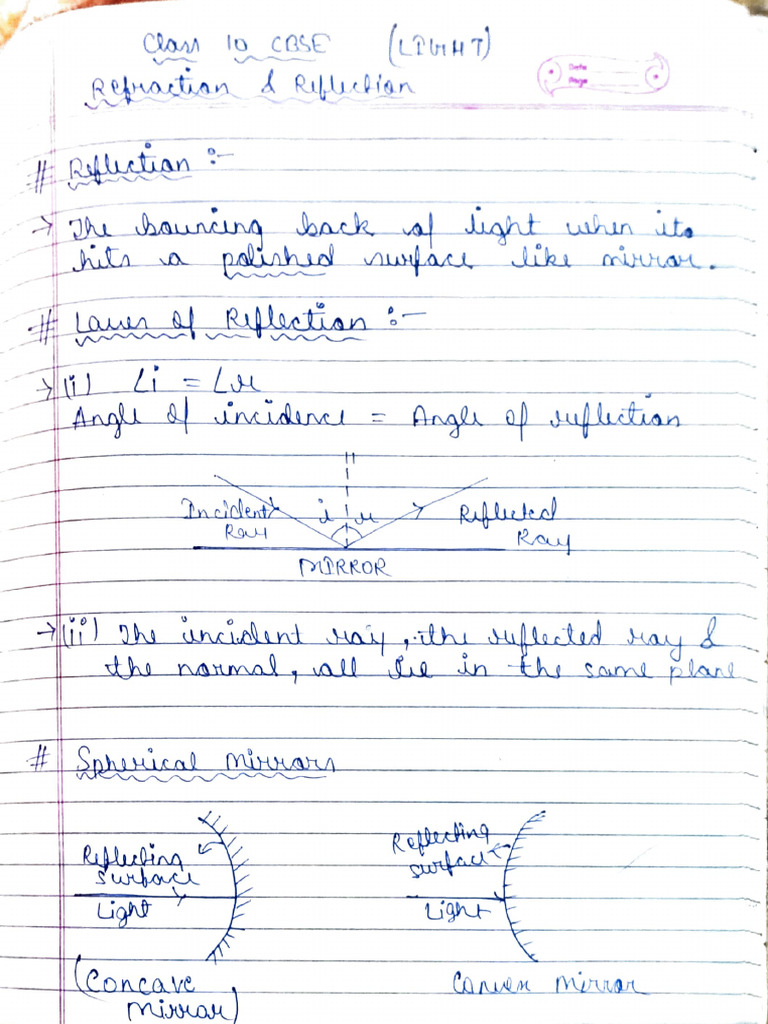 Class 10 CBSE (LIGHT)
Date
Page
Refraction & Reflection
# Reflection :-
→ The bouncing back of light when its
hits a polished surface like mirror.
# Laws of Reflection :-
→ (i) ∠i = ∠r
Angle of incidence = Angle of reflection
Incident
Ray
i r
Reflected
Ray
MIRROR
→ (ii) The incident ray, the reflected ray &
the normal, all lie in the same plane
# Spherical Mirrors
Reflecting
surface
Light
(Concave
mirror)
Reflecting
surface
Light
Convex mirror